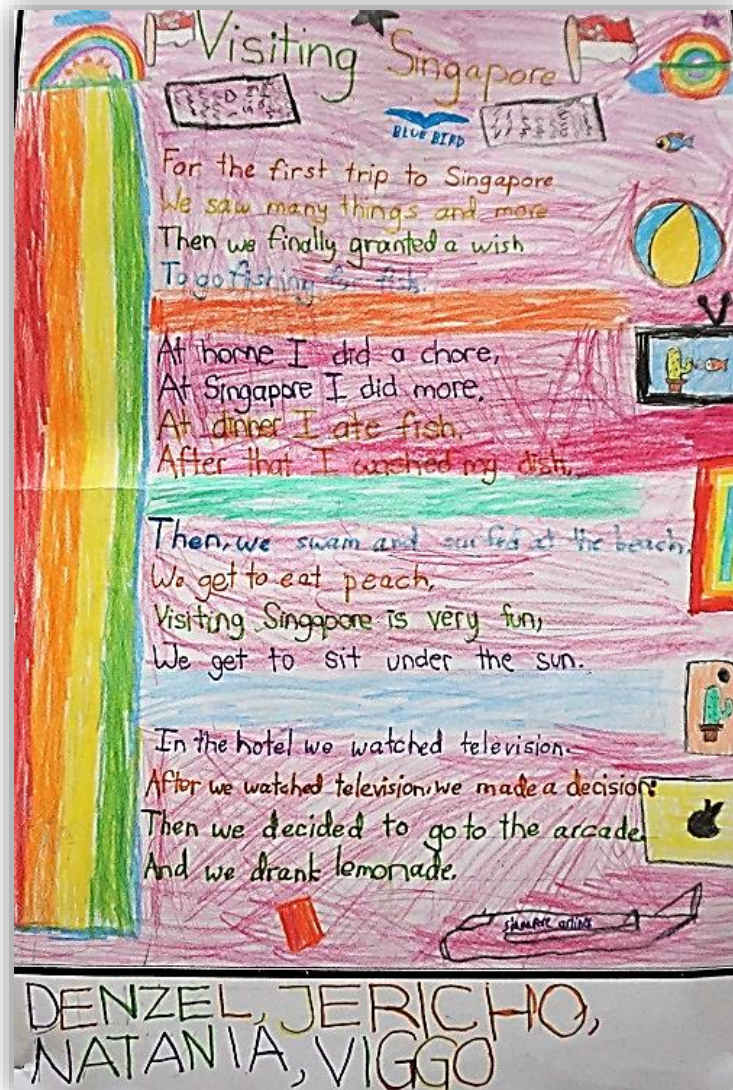 Visiting Singapore
BLUE BIRD
For the first trip to Singapore
We saw many things and more
Then we finally granted a wish
To go fishing for fish.
At home I did a chore,
At Singapore I did more,
At dinner I ate fish.
After that I washed my dish.
Then, we swam and surfed at the beach,
We get to eat peach,
Visiting Singapore is very fun,
We get to sit under the sun.
In the hotel we watched television.
After we watched television, we made a decision.
Then we decided to go to the arcade.
And we drank lemonade.
singapore
DENZEL, JERICHO,
NATANIA, VIGGO